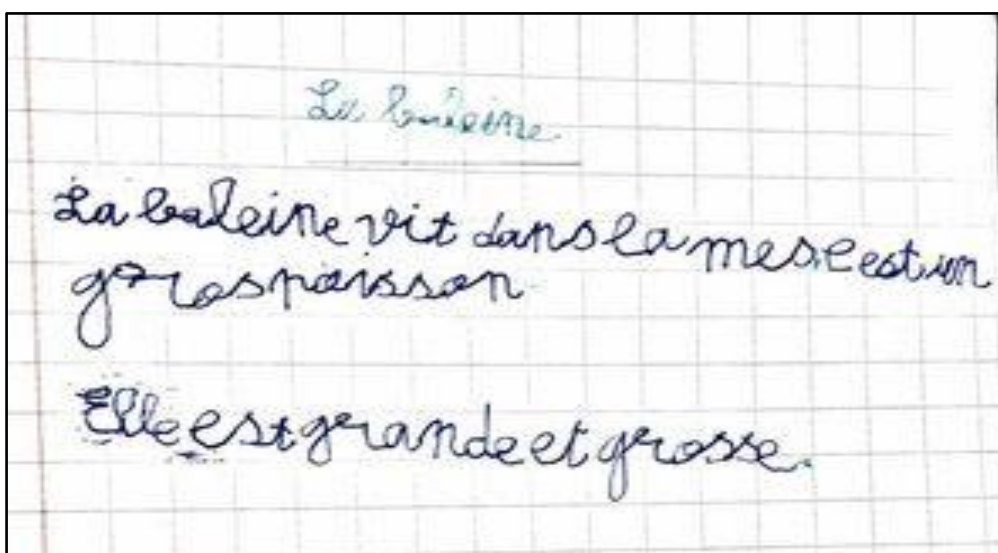 La baleine
La baleine vit dans la mer. C'est un
gros poisson
Elle est grande et grosse.